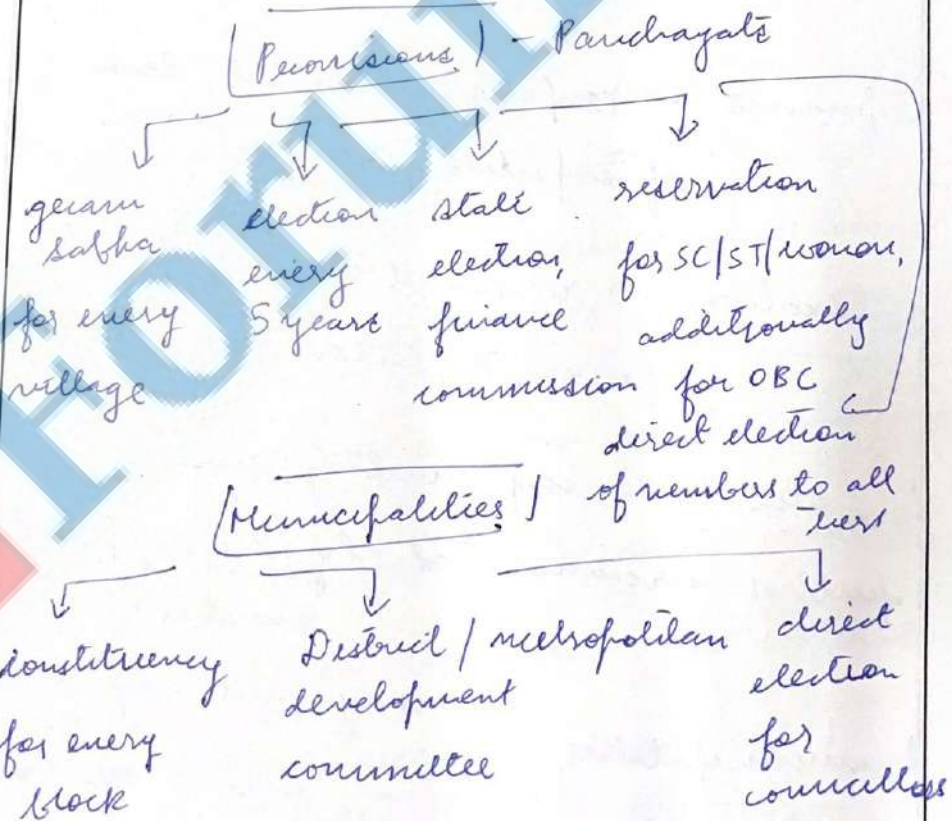 [Provisions] - Panchayats
gram
sabha
for every
village
election
every
5 years
state
election,
finance
commission
reservation
for SC/ST/women,
additionally
for OBC
direct election
of members to all
tiers
[Municipalities]
constituency
for every
block
District / metropolitan
development
committee
direct
election
for
councillors
Forum